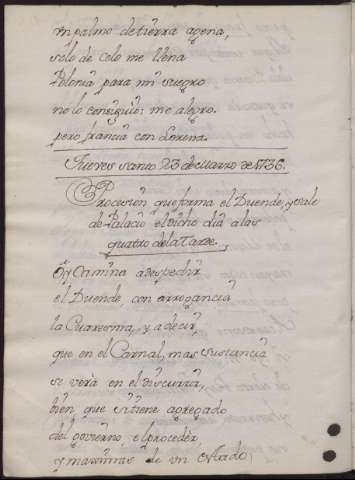 un palmo de tierra agena,
solo de celo me llena
Polonia para mi suegro
no lo consiguio: me alegro.
pero francia con Lorena.
Jueves santo 23 de Marzo de 1736.
Procesion que forma el Duende, y sale
de Palacio el dicho dia a las
quatro de la Tarde.
Oy Camina a despedir
el Duende, con arrogancia
la Cuaresma, y a decir,
que en el Carnal, mas sustancia
se verà en el discurrir,
bien que si tiene agregado
del govierno el proceder,
y maximas de un